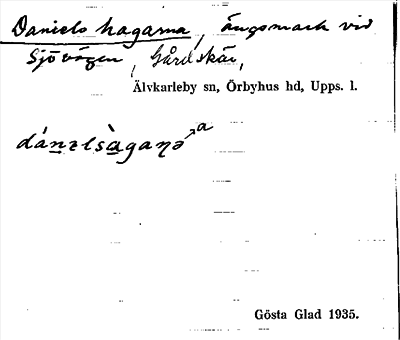 Daniels hagarna, ängsmark vid
Sjövägen, Gårdskär,
Älvkarleby sn, Örbyhus hd, Upps. l.
a
dánəlsàgaɳə
Gösta Glad 1935.